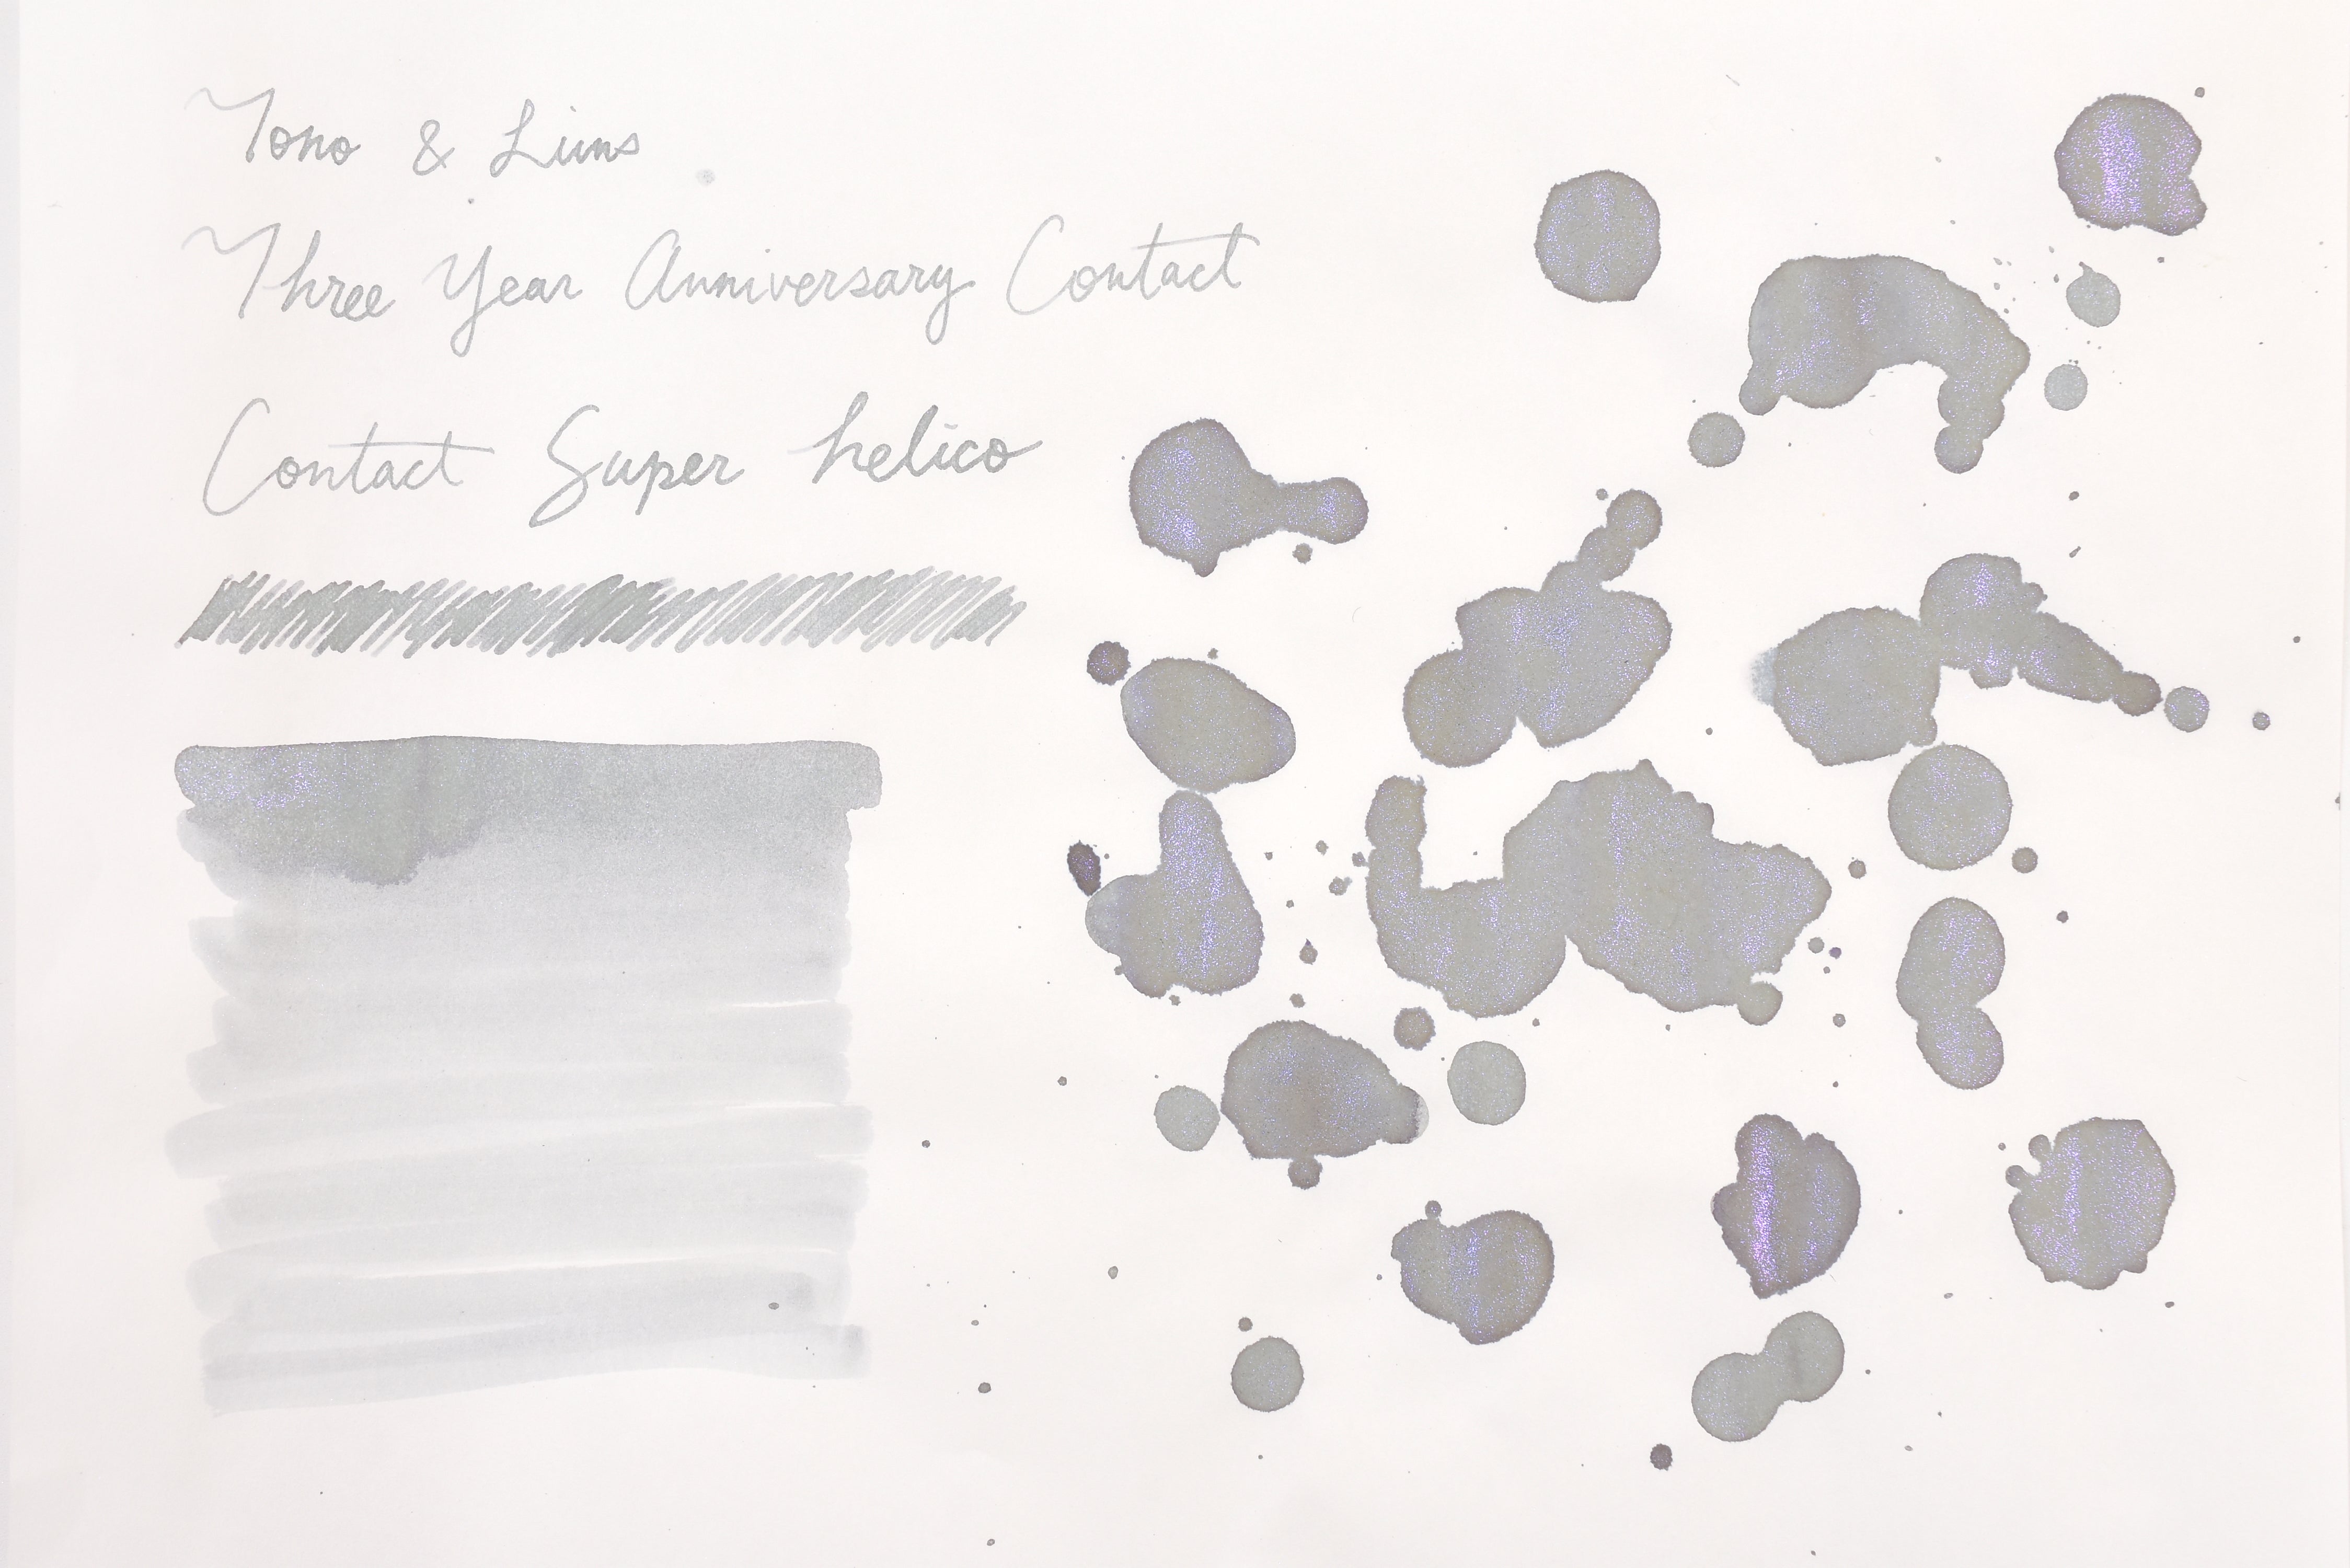 Tono & Lims
Three Year Anniversary Contact
Contact Super helico